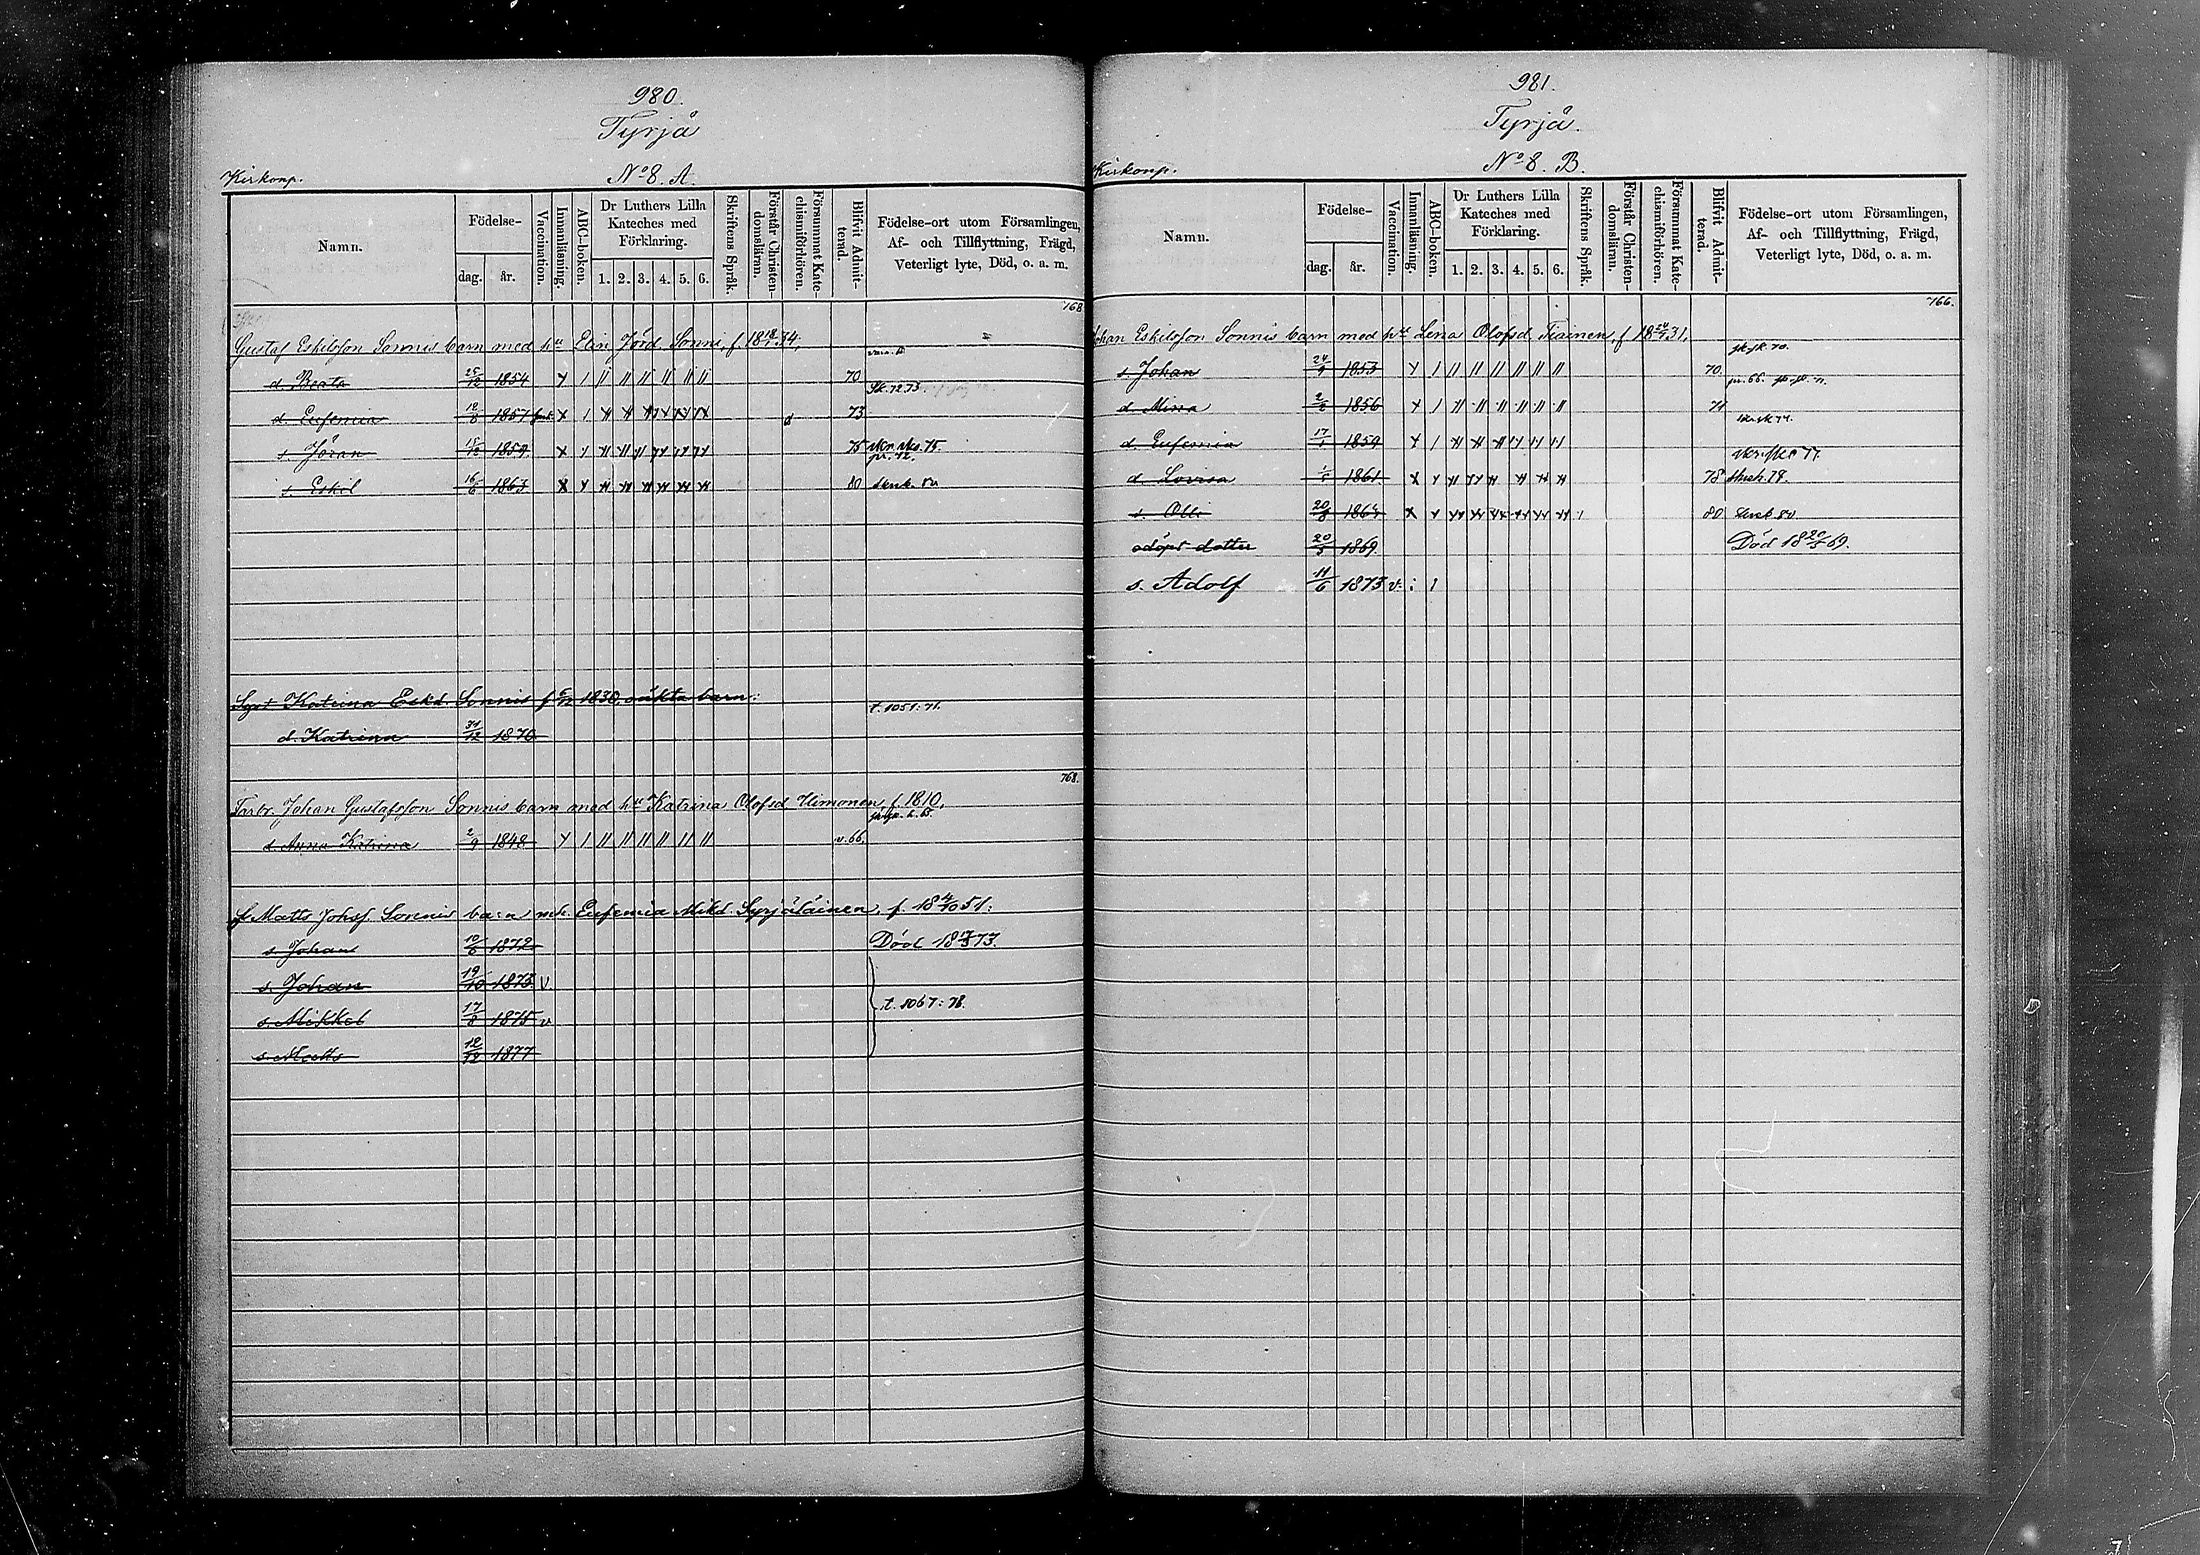 980.
Tyrjä
Kirkonp. No 8. A.
Namn. Födelse- dag. år. Vaccination. Innanläsning. ABC-boken. Dr Luthers Lilla Kateches med Förklaring. 1. 2. 3. 4. 5. 6. Skriftens Språk. Förstår Christendomsläran. Försummat Katechismiförhören. Blifvit Admitterad. Födelse-ort utom Församlingen, Af- och Tillflyttning, Frägd, Veterligt lyte, Död, o. a. m.
768
Gustaf Eskilsson Sonnis barn med hu Elin Jörd. Sonni, f. 18 34,
d. Beata 25/12 1854 70
d. Eufemia 12/8 1857 73 Sk. 72. 73.
s. Jöran 1859 75
s. Eskil 16/6 1863 80
Katrina Eskd. Sonnis f. 1830, oäkta barn:
t. 1051: 71.
d. Katrina 31/12 1870
768.
Johan Gustafsson Sonnis barn med hu Katrina Olofsd Himonen, f. 1810,
d. Anna Katrina 2/9 1848 v. 66.
Matts Johsf. Sonnis barn mh. Eufemia Mikd. Syrjäläinen, f. 18 4/10 51:
s. Johan 10/6 1872 Död 18 73.
s. Johan 19/10 1873 v
s. Mikkel 17/8 1875 v t. 1067: 78.
s. Matts 12/12 1877
981.
Tyrjä.
Kirkonp. No 8. B.
Namn. Födelse- dag. år. Vaccination. Innanläsning. ABC-boken. Dr Luthers Lilla Kateches med Förklaring. 1. 2. 3. 4. 5. 6. Skriftens Språk. Förstår Christendomsläran. Försummat Katechismiförhören. Blifvit Admitterad. Födelse-ort utom Församlingen, Af- och Tillflyttning, Frägd, Veterligt lyte, Död, o. a. m.
766.
Johan Eskilsson Sonnis barn med hu Lena Olofsd. Tiainen, f. 18 31,
s. Johan 24/9 1853 70
d. Minna 2/2 1856 71
d. Eufemia 17/1 1859
d. Lovisa 1/5 1861 78
s. Olli 20/8 1864 80
odöpt dotter 20/5 1869 Död 18 20/5 69.
s. Adolf 11/6 1873 v.